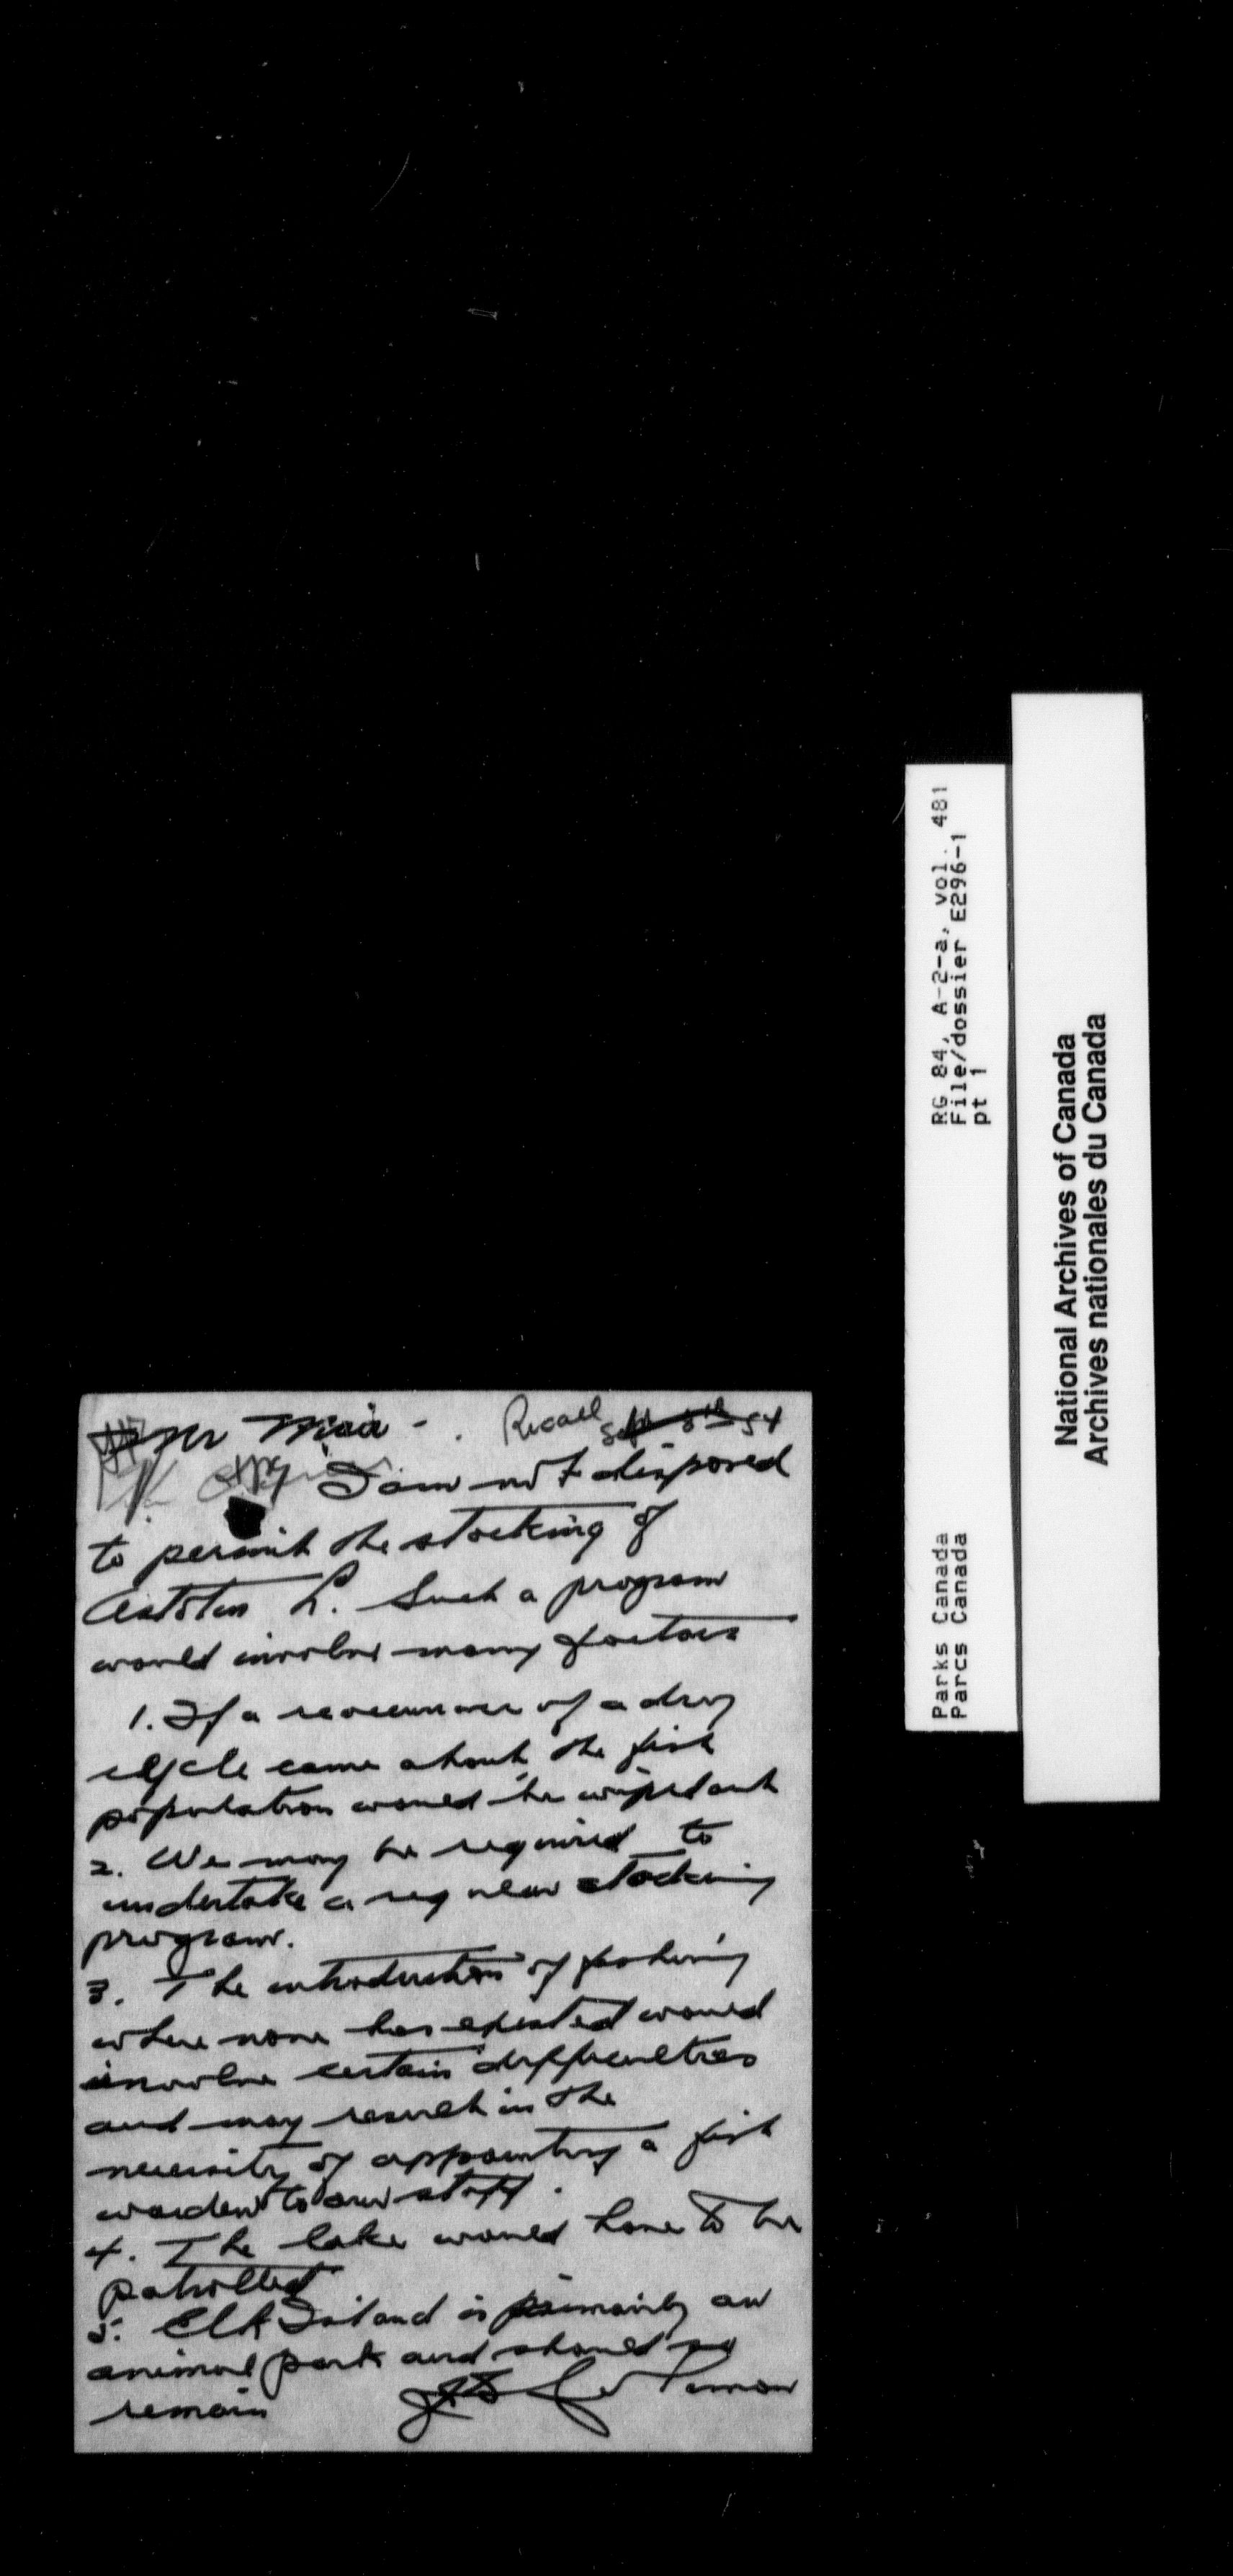 Mr Mair - . Recall Sept 8th 54
I am not disposed
to permit the stocking of
Astotin L. Such a program
would involve many factors
1. If a reoccurance of a dry
cycle came about the fish
population would be wiped out
2. We may be required to
undertake a regular stocking
program.
3. The introduction of fishing
where none has existed would
involve certain difficulties
and may result in the
necessity of appointing a fish
warden to our staff.
4. The lake would have to be
patrolled
5. Elk Island is primarily an
animal park and should so
remain
RG 84, A-2-a, vol. 481
File/dossier E296-1
pt 1
Parks Canada
Parcs Canada
National Archives of Canada
Archives nationales du Canada